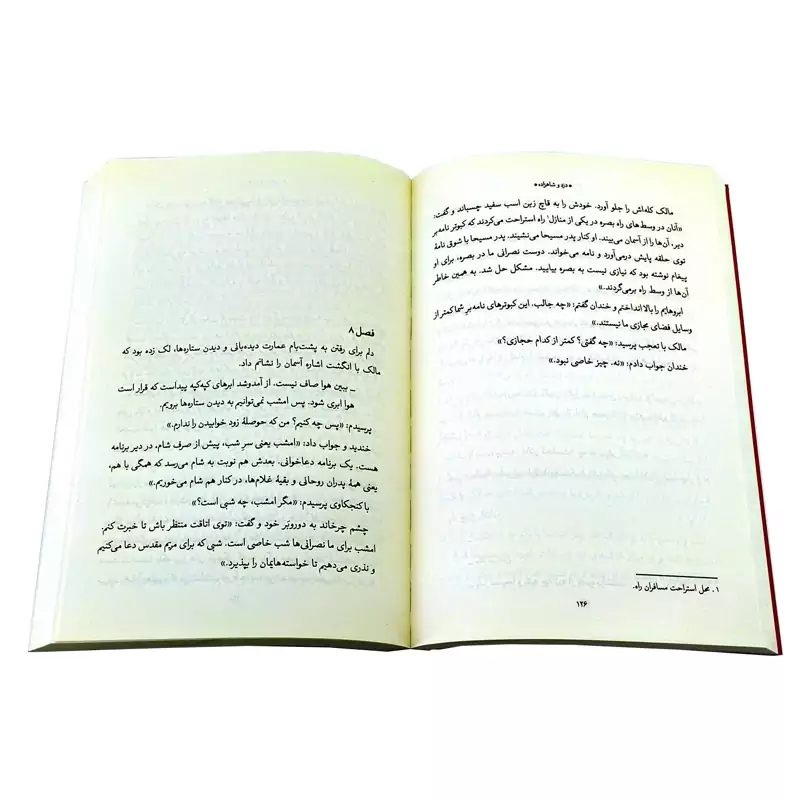 * دزد و شاهزاده *
مالک کله‌اش را جلو آورد. خودش را به قاچ زین اسب سفید چسباند و گفت:
«آنان در وسط‌های راه بصره در یکی از منازل۱ راه استراحت می‌کردند که کبوتر نامه‌بر
دیر، آن‌ها را از آسمان می‌بیند. او کنار پدر مسیحا می‌نشیند. پدر مسیحا با شوق نامهٔ
توی حلقه پایش درمی‌آورد و نامه می‌خواند. دوست نصرانی ما در بصره، برای او
پیغام نوشته بود که نیازی نیست به بصره بیایید. مشکل حل شد. به همین خاطر
آن‌ها از وسط راه برمی‌گردند.»
ابروهایم را بالا انداختم و خندان گفتم: «چه جالب. این کبوترهای نامه‌بر شما کمتر از
وسایل فضای مجازی ما نیستند.»
مالک با تعجب پرسید: «چه گفتی؟ کمتر از کدام حجازی؟»
خندان جواب دادم: «نه. چیز خاصی نبود.»
۱. محل استراحت مسافران راه.
۱۲۶
فصل ۸
دلم برای رفتن به پشت‌بام عمارت دیده‌بانی و دیدن ستاره‌ها، لک زده بود که
مالک با انگشت اشاره آسمان را نشانم داد.
ـ ببین هوا صاف نیست. از آمدوشد ابرهای کپه‌کپه پیداست که قرار است
هوا ابری شود. پس امشب نمی‌توانیم به دیدن ستاره‌ها برویم.
پرسیدم: «پس چه کنیم؟ من که حوصلهٔ زود خوابیدن را ندارم.»
خندید و جواب داد: «امشب یعنی سر شب، پیش از صرف شام، در دیر برنامه
هست. یک برنامه دعاخوانی. بعدش هم نوبت به شام می‌رسد که همگی با هم،
یعنی همهٔ پدران روحانی و بقیهٔ غلام‌ها، در کنار هم شام می‌خوریم.»
با کنجکاوی پرسیدم: «مگر امشب، چه شبی است؟»
چشم چرخاند به دوروبَر خود و گفت: «توی اتاقت منتظر باش تا خبرت کنم.
امشب برای ما نصرانی‌ها شب خاصی است. شبی که برای مریم مقدس دعا می‌کنیم
و نذری می‌دهیم تا خواسته‌هایمان را بپذیرد.»